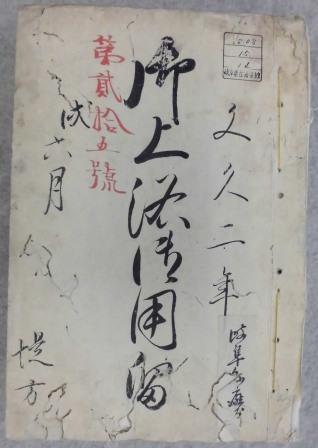 文久二年
岐阜
御上洛御用留
第貳拾五號
戌六月
堤方